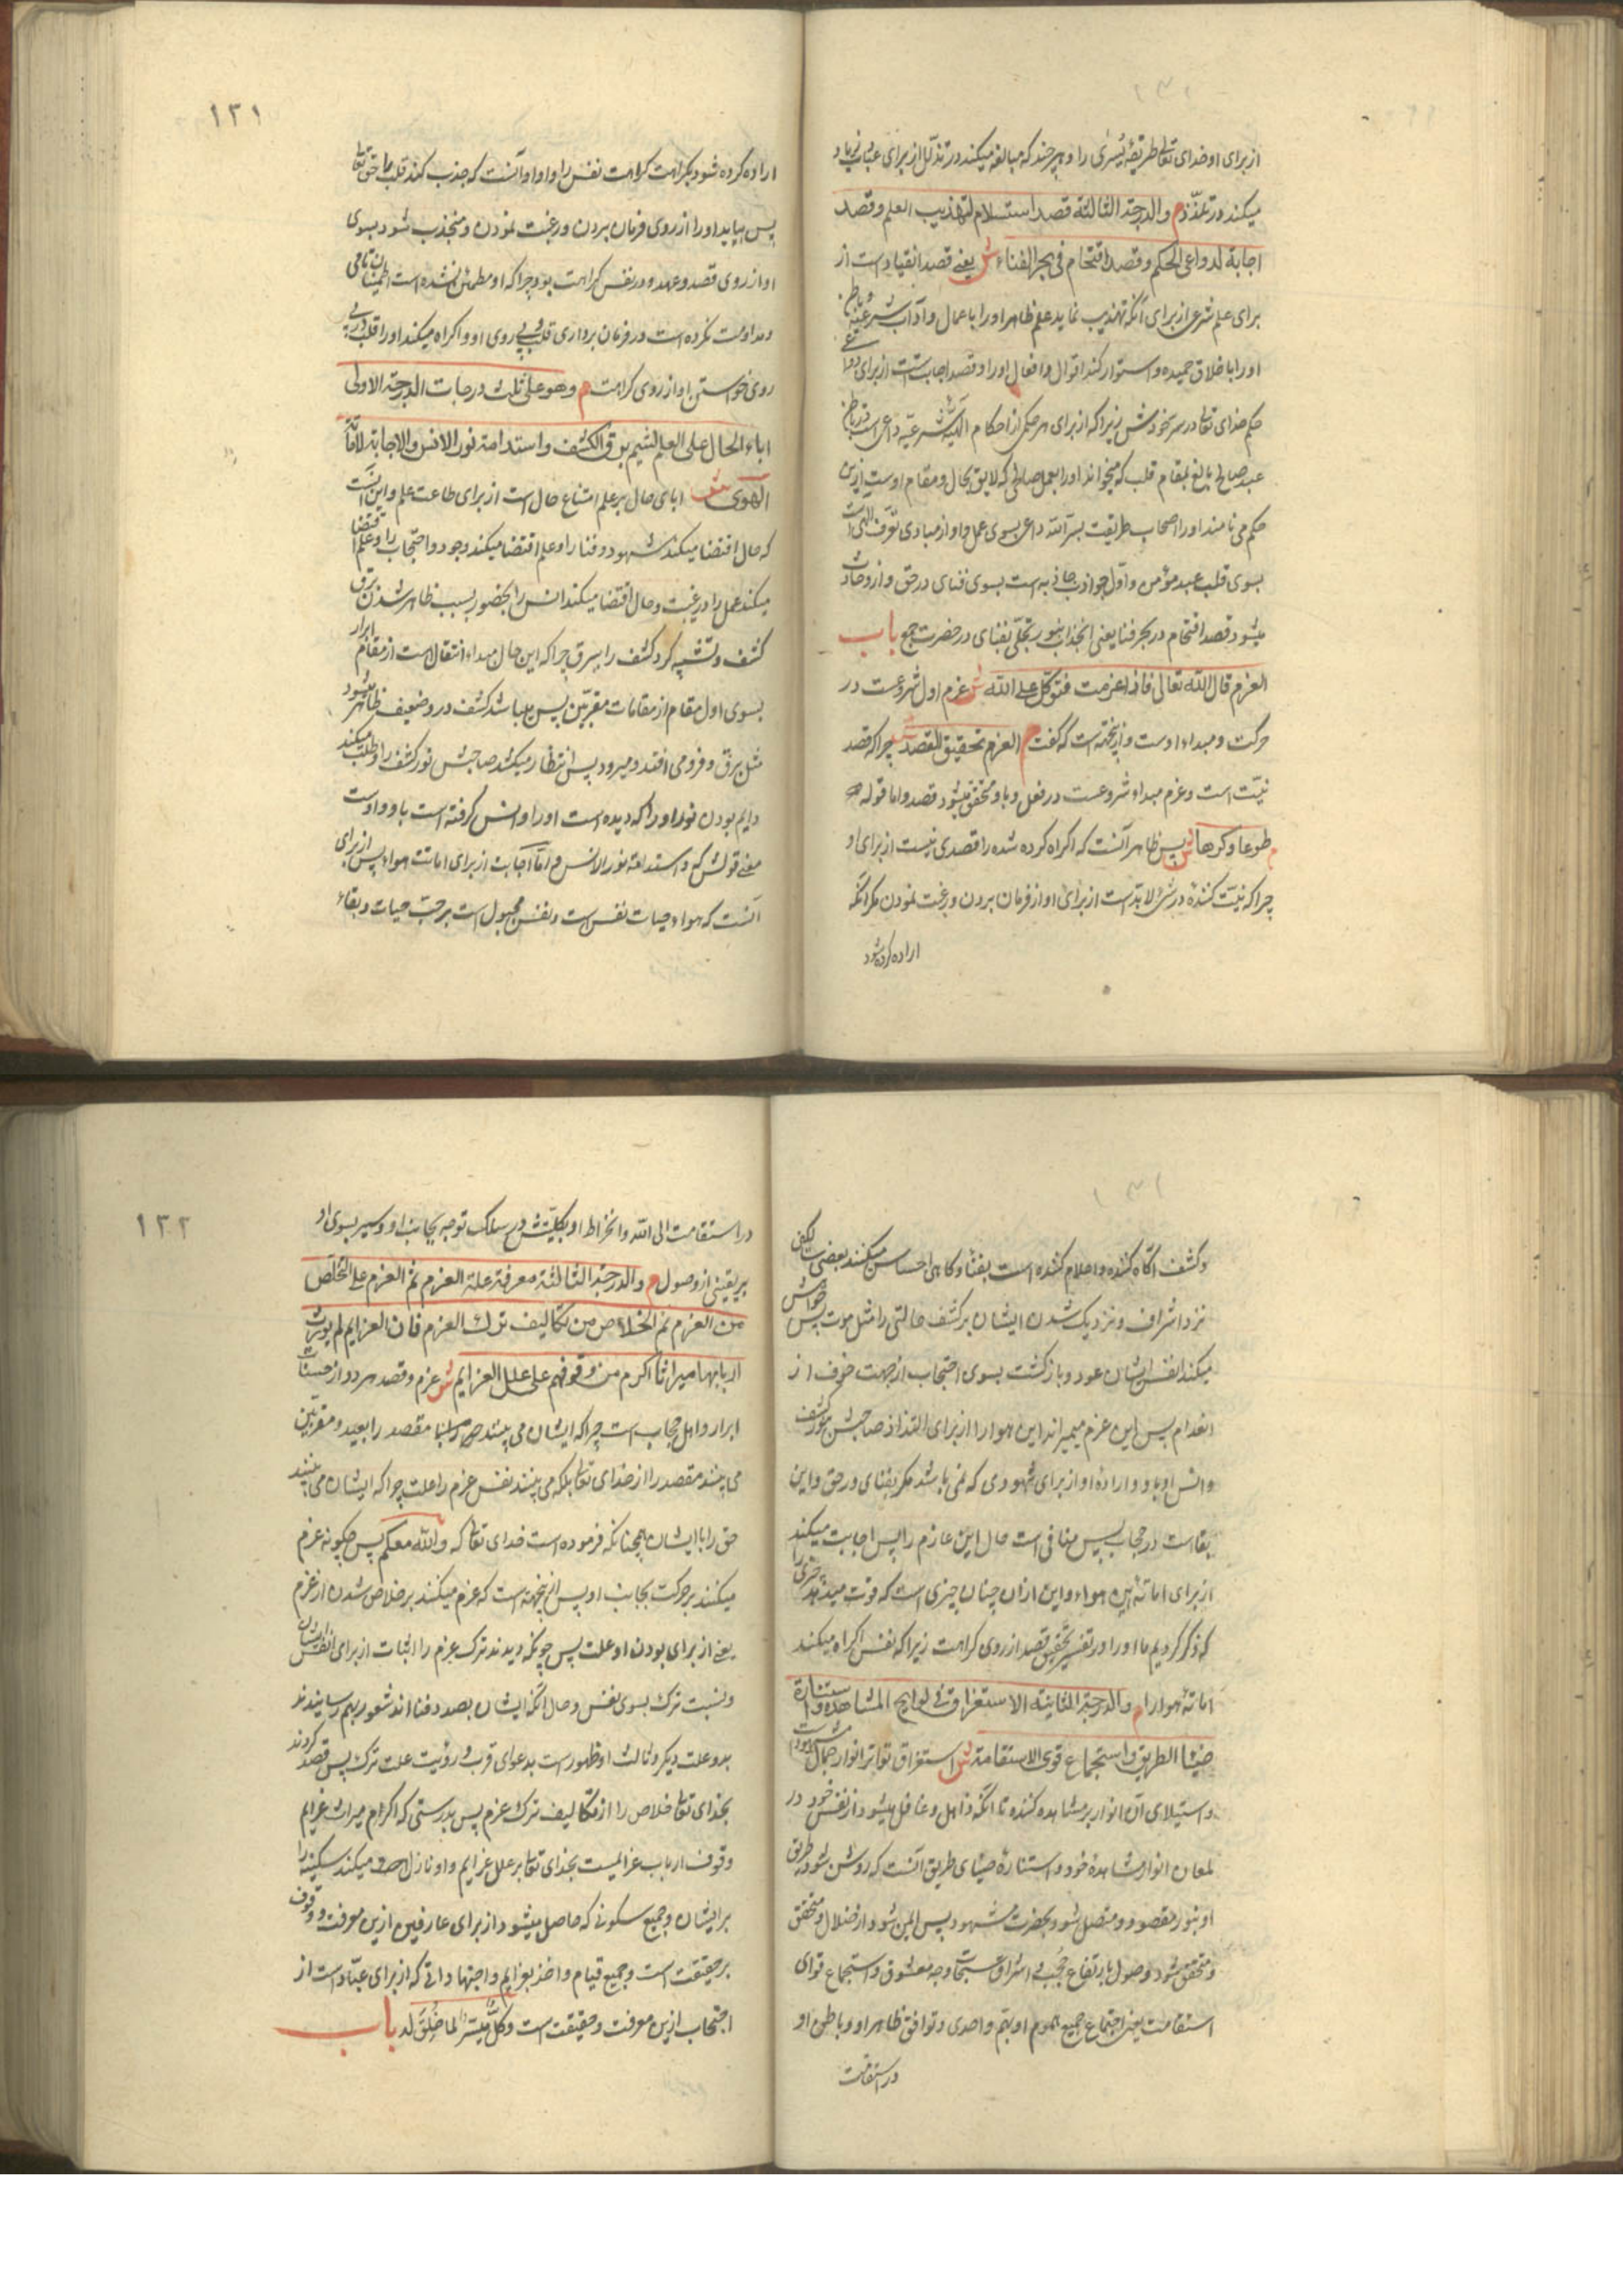 از برای او خدای تعالی طریقهٔ یسری را و هر چند که مبالغه میکند در تذلل از برای عتاب زیاد
میکند در تلذذ م والدرجة الثالثة قصد استسلام لتهذیب العلم و قصد
اجابة لدواعی الحکم و قصد اقتحام فی بحر الفناء ش یعنی قصد انقیاد است از
برای علم شرعی از برای آنکه تهذیب نماید علم ظاهر او را باعمال و آداب شرعیه و باطن
او را باخلاق حمیده و استوار کند اقوال و افعال او را و قصد اجابت است از برای دواعی
حکم خدای تعالی در سر خودش زیرا که از برای هر حکمی از احکام الهیه شرعیه داعی است در باطن
عبد صالح بالغ بمقام قلب که میخواند او را بعمل صالحی که لایق بحال و مقام اوست ازین
حکم می نامند او را اصحاب طریقت بسر الله داعی بسوی عمل و او از مبادی تعرف الهی است
بسوی قلب عبد مؤمن و اول جواذب جاذبه است بسوی فنای در حق و ازو حادث
میشود قصد اقتحام در بحر فنا یعنی انجذاب بنور تجلی بفنای در حضرت جمع باب
العزم قال الله تعالی فاذا عزمت فتوکل علی الله ش عزم اول شروعست در
حرکت و مبداء اوست و ازینجهته است که گفت م العزم تحقیق القصد ش چرا که قصد
نیت است و عزم مبداء شروعست در فعل و باو متحقق میشود قصد و اما قوله
م طوعا و کرها ش پس ظاهر آنست که اکراه کرده شده را قصدی نیست از برای او
چرا که نیت کننده در شئ لابد است از برای او از فرمان بردن و رغبت نمودن مکر آنکه
اراده کرده شود
١٢١
اراده کرده شود بکراهت کراهت نفس را و او او آنست که جذب کند قلب را حق تعالی
پس بیاید او را از روی فرمان بردن و رغبت نمودن و منجذب شود بسوی
او از روی قصد و عهد و در نفس کراهت بود چرا که او مطمئن نشده است اطمینان تامی
و مداومت نکرده است در فرمان برداری قلب پی روی او و اکراه میکند او را قلب
روی خواستن او از روی کراهت م و هو علی ثلث درجات الدرجة الاولی
اباء الحال علی العلم لشیم برق الکشف و استدامة نور الانس و الاجابة لاماتة
الهوی ش ابای حال بر علم امتناع حال است از برای طاعت علم و این آنست
که حال اقتضا میکند شهود و فنا را و علم اقتضا میکند وجود و احتجاب را و علم اقتضا
میکند عمل را در غیبت و حال اقتضا میکند انس را بحضور بسبب ظاهر شدن برق
کشف و تشبیه کرد کشف را ببرق چرا که این حال مبداء انتقال است از مقام ابرار
بسوی اول مقام از مقامات مقربین پس میباشد کشف درو ضعیف ظاهر میشود
مثل برق و فرو می افتد و میرود پس انتظار میکشد صاحبش نور کشف را و طلب میکند
دایم بودن نور او را که دیده است او را و انس گرفته است باو و اوست
معنی قولش که و استدامة نور الانس و اما اجابت از برای اماتت هواء پس از برای
آنست که هواء حیات نفس است و نفس مجبول است بر حب حیات و بقاء
و کشف آگاه کننده و اعلام کننده است بفنا و کاهی احساس میکنند بعضی
نزد اشراف و نزدیک شدن ایشان بر کشف حالتی را مثل موت پس خواهش
میکند انفس ایشان عود و بازگشت بسوی احتجاب از جهت خوف از
انعدام پس این عزم میمیراند این هوا را از برای التذاذ صاحبش بنور کشف
و انس او باو و اراده او از برای شهودی که نمی باشد مکر بفنای در حق و این
بقا است در حجاب پس منافی است حال این عازم را پس اجابت میکند
از برای اماتهٔ این هواء و این از آن چنان چیزی است که قوت میدهد چیزی را
که ذکر کردیم ما او را در تفسیر تحقیق قصد از روی کراهت زیرا که نفس اکراه میکند
اماتهٔ هوا را م والدرجة الثانیة الاستغراق فی لوایح المشاهدة و استنارة
ضیاء الطریق و استجماع قوی الاستقامة ش استغراق تواتر انوار جمال مشهود است
و استیلای آن انوار بر مشاهده کننده تا آنکه ذاهل و غافل میشود از نفس خود در
لمعان انوار مشاهدهٔ خود و استنارهٔ ضیای طریق آنست که روشن شود طریق
او بنور مقصود و متصل شود بحضرت مشهود پس ایمن شود از ضلال و متحقق
و متحقق شود وصول بارتفاع حجب و اشراق سبحات وجه معشوق و استجماع قوای
استقامت یعنی اجتماع جمیع هموم او بهم واحدی و توافق ظاهر او و باطن او
در استقامت
١٢٢
در استقامت الی الله و انخراط او بکلیتش در سلک توجه بجانب او و سیر بسوی او
بر یقینی از وصول م والدرجة الثالثة معرفة علة العزم ثم العزم علی التخلص
من العزم ثم الخلاص من تکالیف ترک العزم فان العزایم لم یورث
اربابها میراثا اکرم من وقوفهم علی علل العزایم ش عزم و قصد هر دو از حسنات
ابرار و اهل حجاب است چرا که ایشان می بینند مقصد را بعید و مقربین
می بینند مقصد را از خدای تعالی بلکه می بینند نفس عزم را علت چرا که ایشان می بینند
حق را با ایشان همچنانکه فرموده است خدای تعالی که والله معکم پس چگونه عزم
میکنند بر حرکت بجانب او پس ازینجهته است که عزم میکنند بر خلاص شدن از عزم
یعنی از برای بودن او علت پس چونکه دیدند ترک عزم را اثبات از برای انفس ایشان
و نسبت ترک بسوی نفس و حال آنکه ایشان بصدد فنا اند شعور بهم رسانیدند
بدو علت دیگر و ثالث او ظهور است بدعوای قرب و رؤیت علت ترک پس قصد کردند
بخدای تعالی خلاص را از تکالیف ترک عزم پس بدرستی که اکرام میراث عزایم
وقوف ارباب عزایمست بخدای تعالی بر علل عزایم و او نازل میکند سکینه را
بر ایشان و جمیع سکونی که حاصل میشود از برای عارفین ازین معرفت و وقوف
بر حقیقت است و جمیع قیام و اخذ بعزایم و اجتهاداتی که از برای عباد است از
احتجاب ازین معرفت و حقیقت است و کل میسر لما خلق له باب